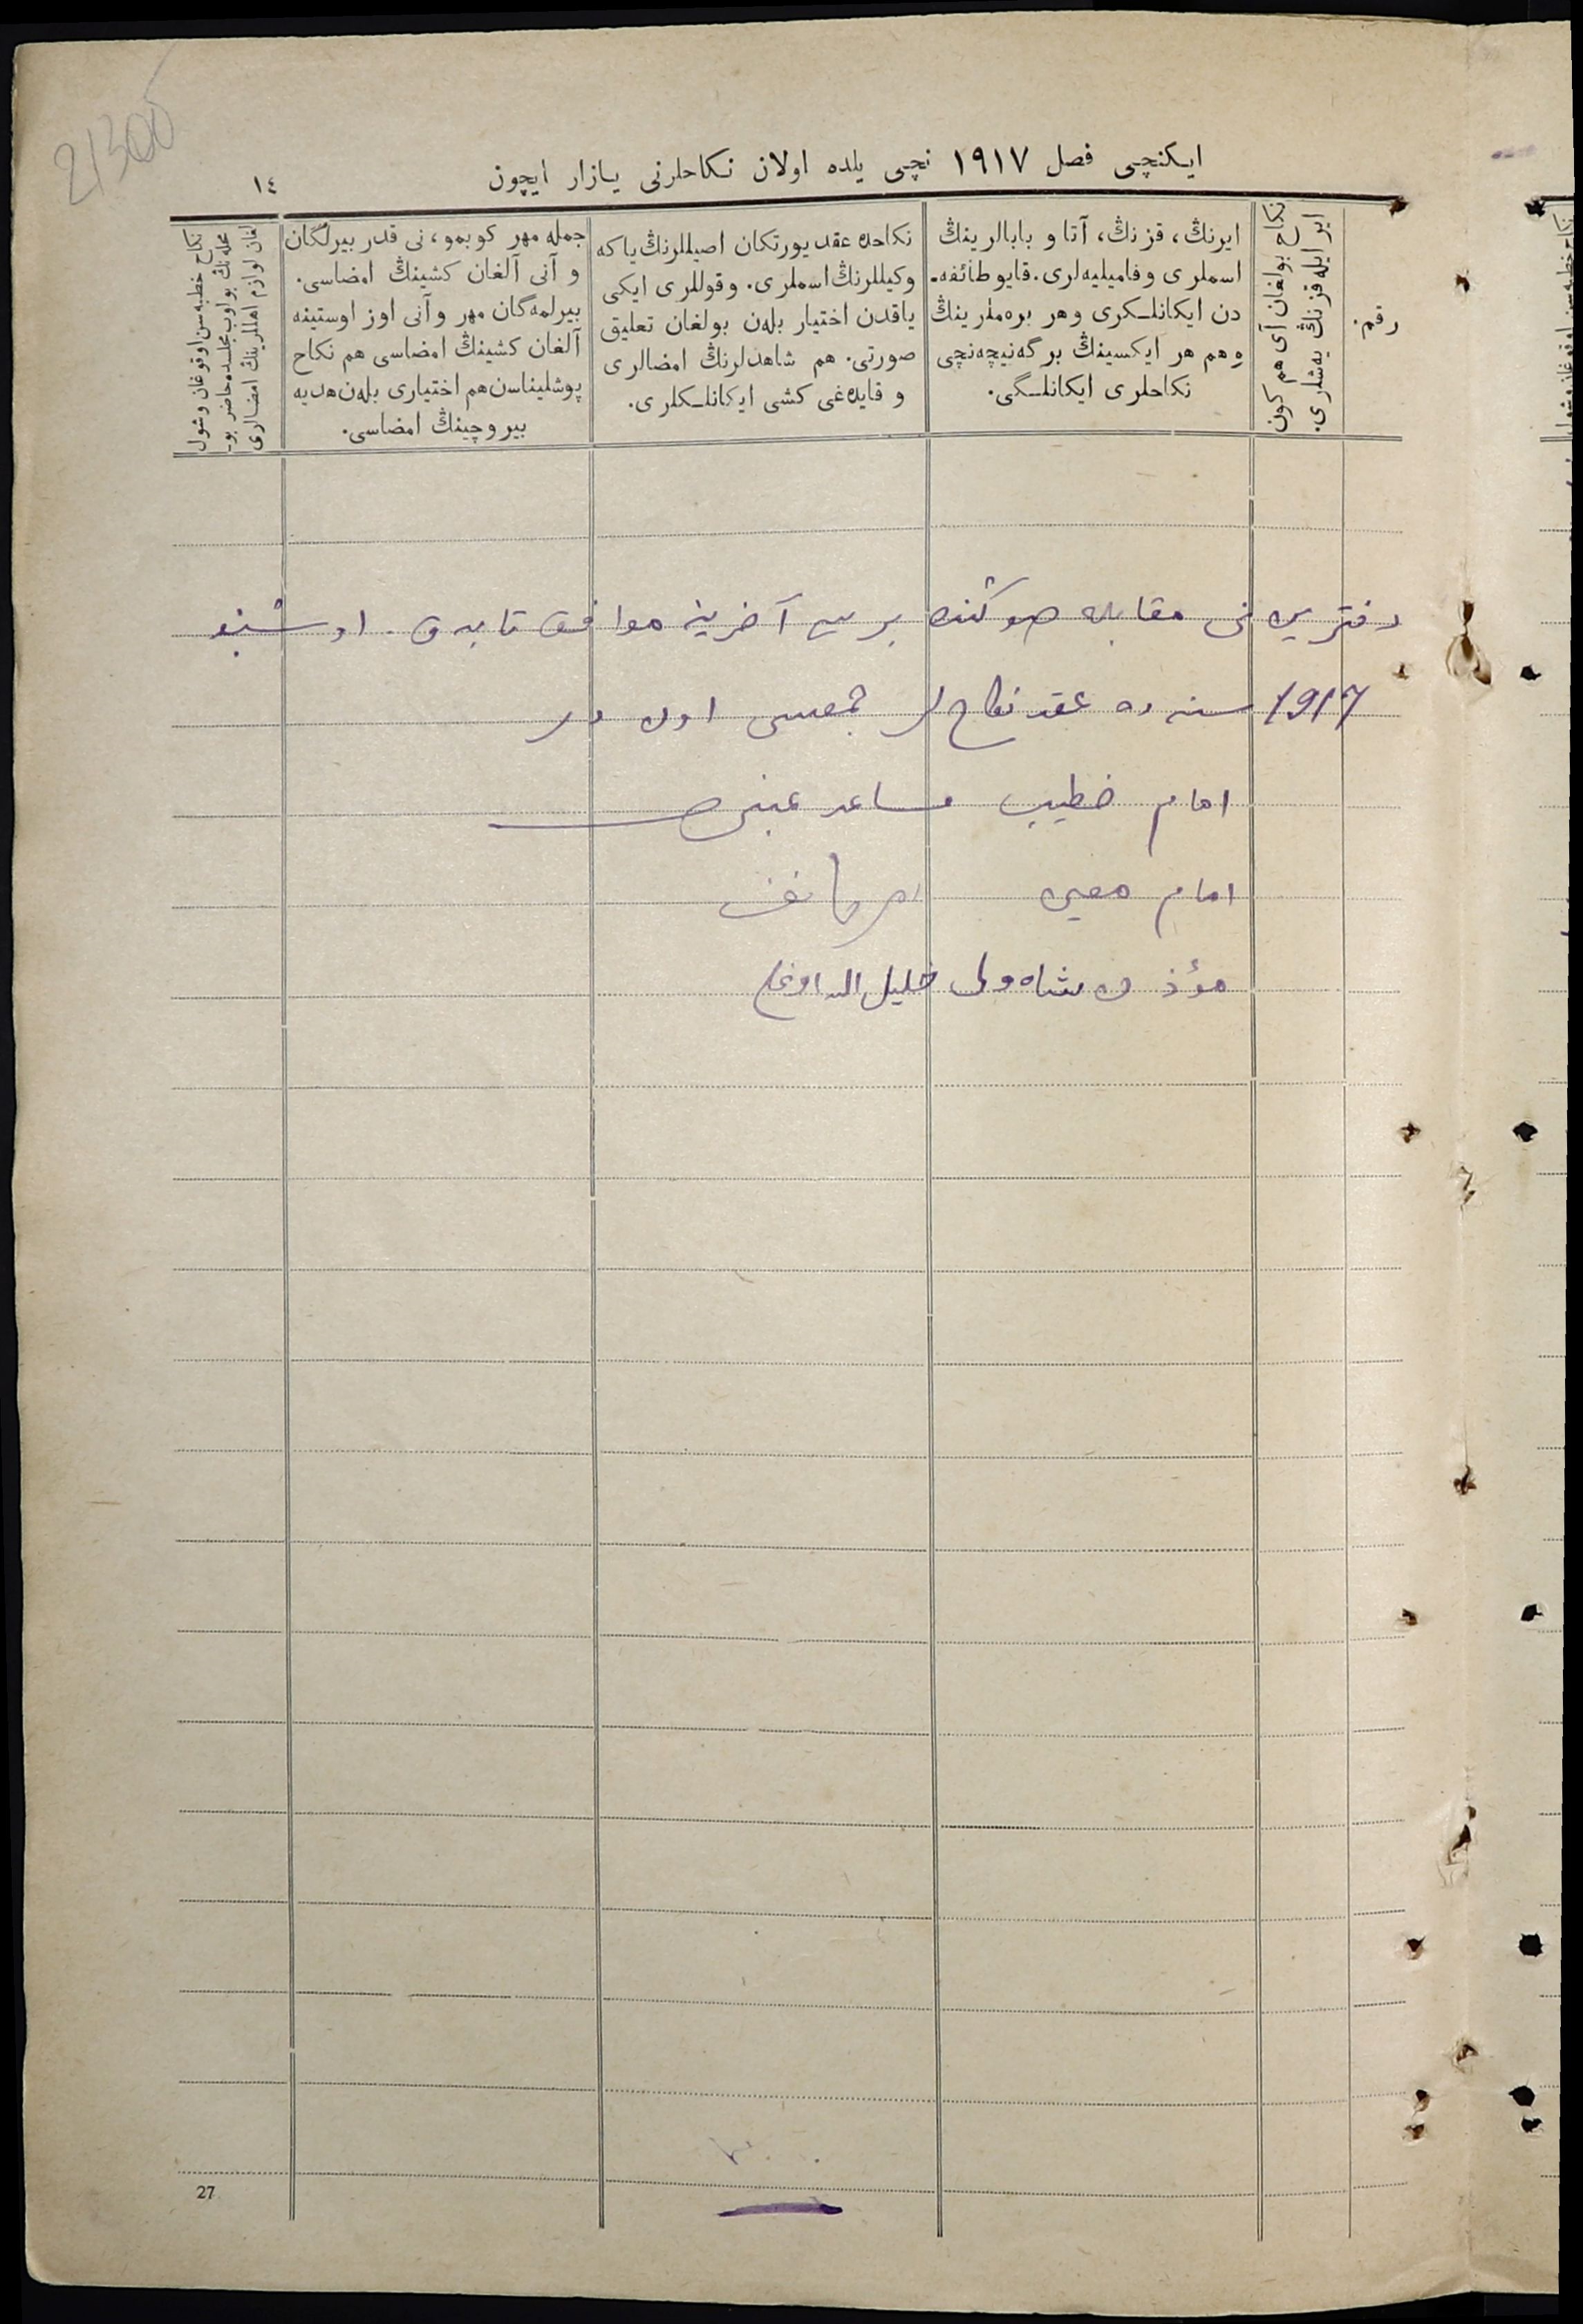 21300
ایكنچی فصل ١٩١٧ نچی یلده اولان نكاحلرنی یازار ایچون
١٤
رقم.
نكاح بولغان آی هم كون
ایر ایله قزنڭ یه‌شلری.
ایرنڭ، قزنڭ، آتا و بابالرینڭ
اسملری و فامیلیه‌لری. قایو طائفه‌-
دن ایكانلـكری و هر بره‌ملرینڭ
وهم هر ایكسینڭ بر گه‌نیچه‌نچی
نكاحلری ایكانلـگی.
نكاحده عقد یورتكان اصیللرنڭ یا كه
وكیللرنڭ اسملری. و قوللری ایكی
یاقدن اختیار بله‌ن بولغان تعلیق
صورتی. هم شاهدلرنڭ امضالری
و قایده‌غی كشی ایكانلـكلری.
جمله مهر كوبمو، نی قدر بیرلگان
و آنی آلغان كشینڭ امضاسی.
بیرلمه‌گان مهر و آنی اوز اوستینه
آلغان كشینڭ امضاسی هم نكاح
پوشلیناسن هم اختیاری بله‌ن هدیه
بیروچینڭ امضاسی.
نكاح خطبه‌سن اوقوغان و شول
محله‌نڭ بولوب مجلسده حاضر بو-
لغان لوازم اهللرینڭ امضالری
دفترین مقابله صوڭنده بر سی آخرینه موافق تابدق. اوشبو
1917 سنه ده عقد نكاح لر جمعسی اون در
امام خطیب مساعد
امام معین
مؤذن شاه ولی خلیل الله اوغلی
27